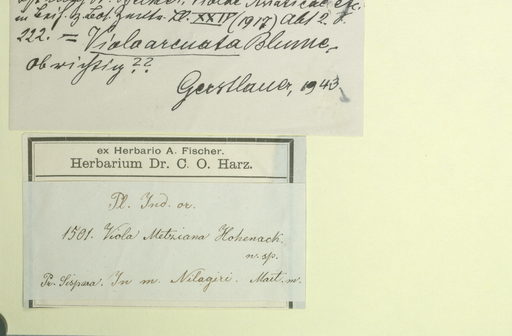 in Beih. z. Bot. Zentr. Bl. XXIV (1917) Abt 2. S.
222. = Viola arcuata Blume,
ob richtig??
Gerstlauer, 1943
ex Herbario A. Fischer.
Herbarium Dr. C. O. Harz.
Pl. Ind. or.
1501. Viola Metziana Hohenack.
n. sp.
Pr. Sispara. In m. Nilagiri. Mait. m.